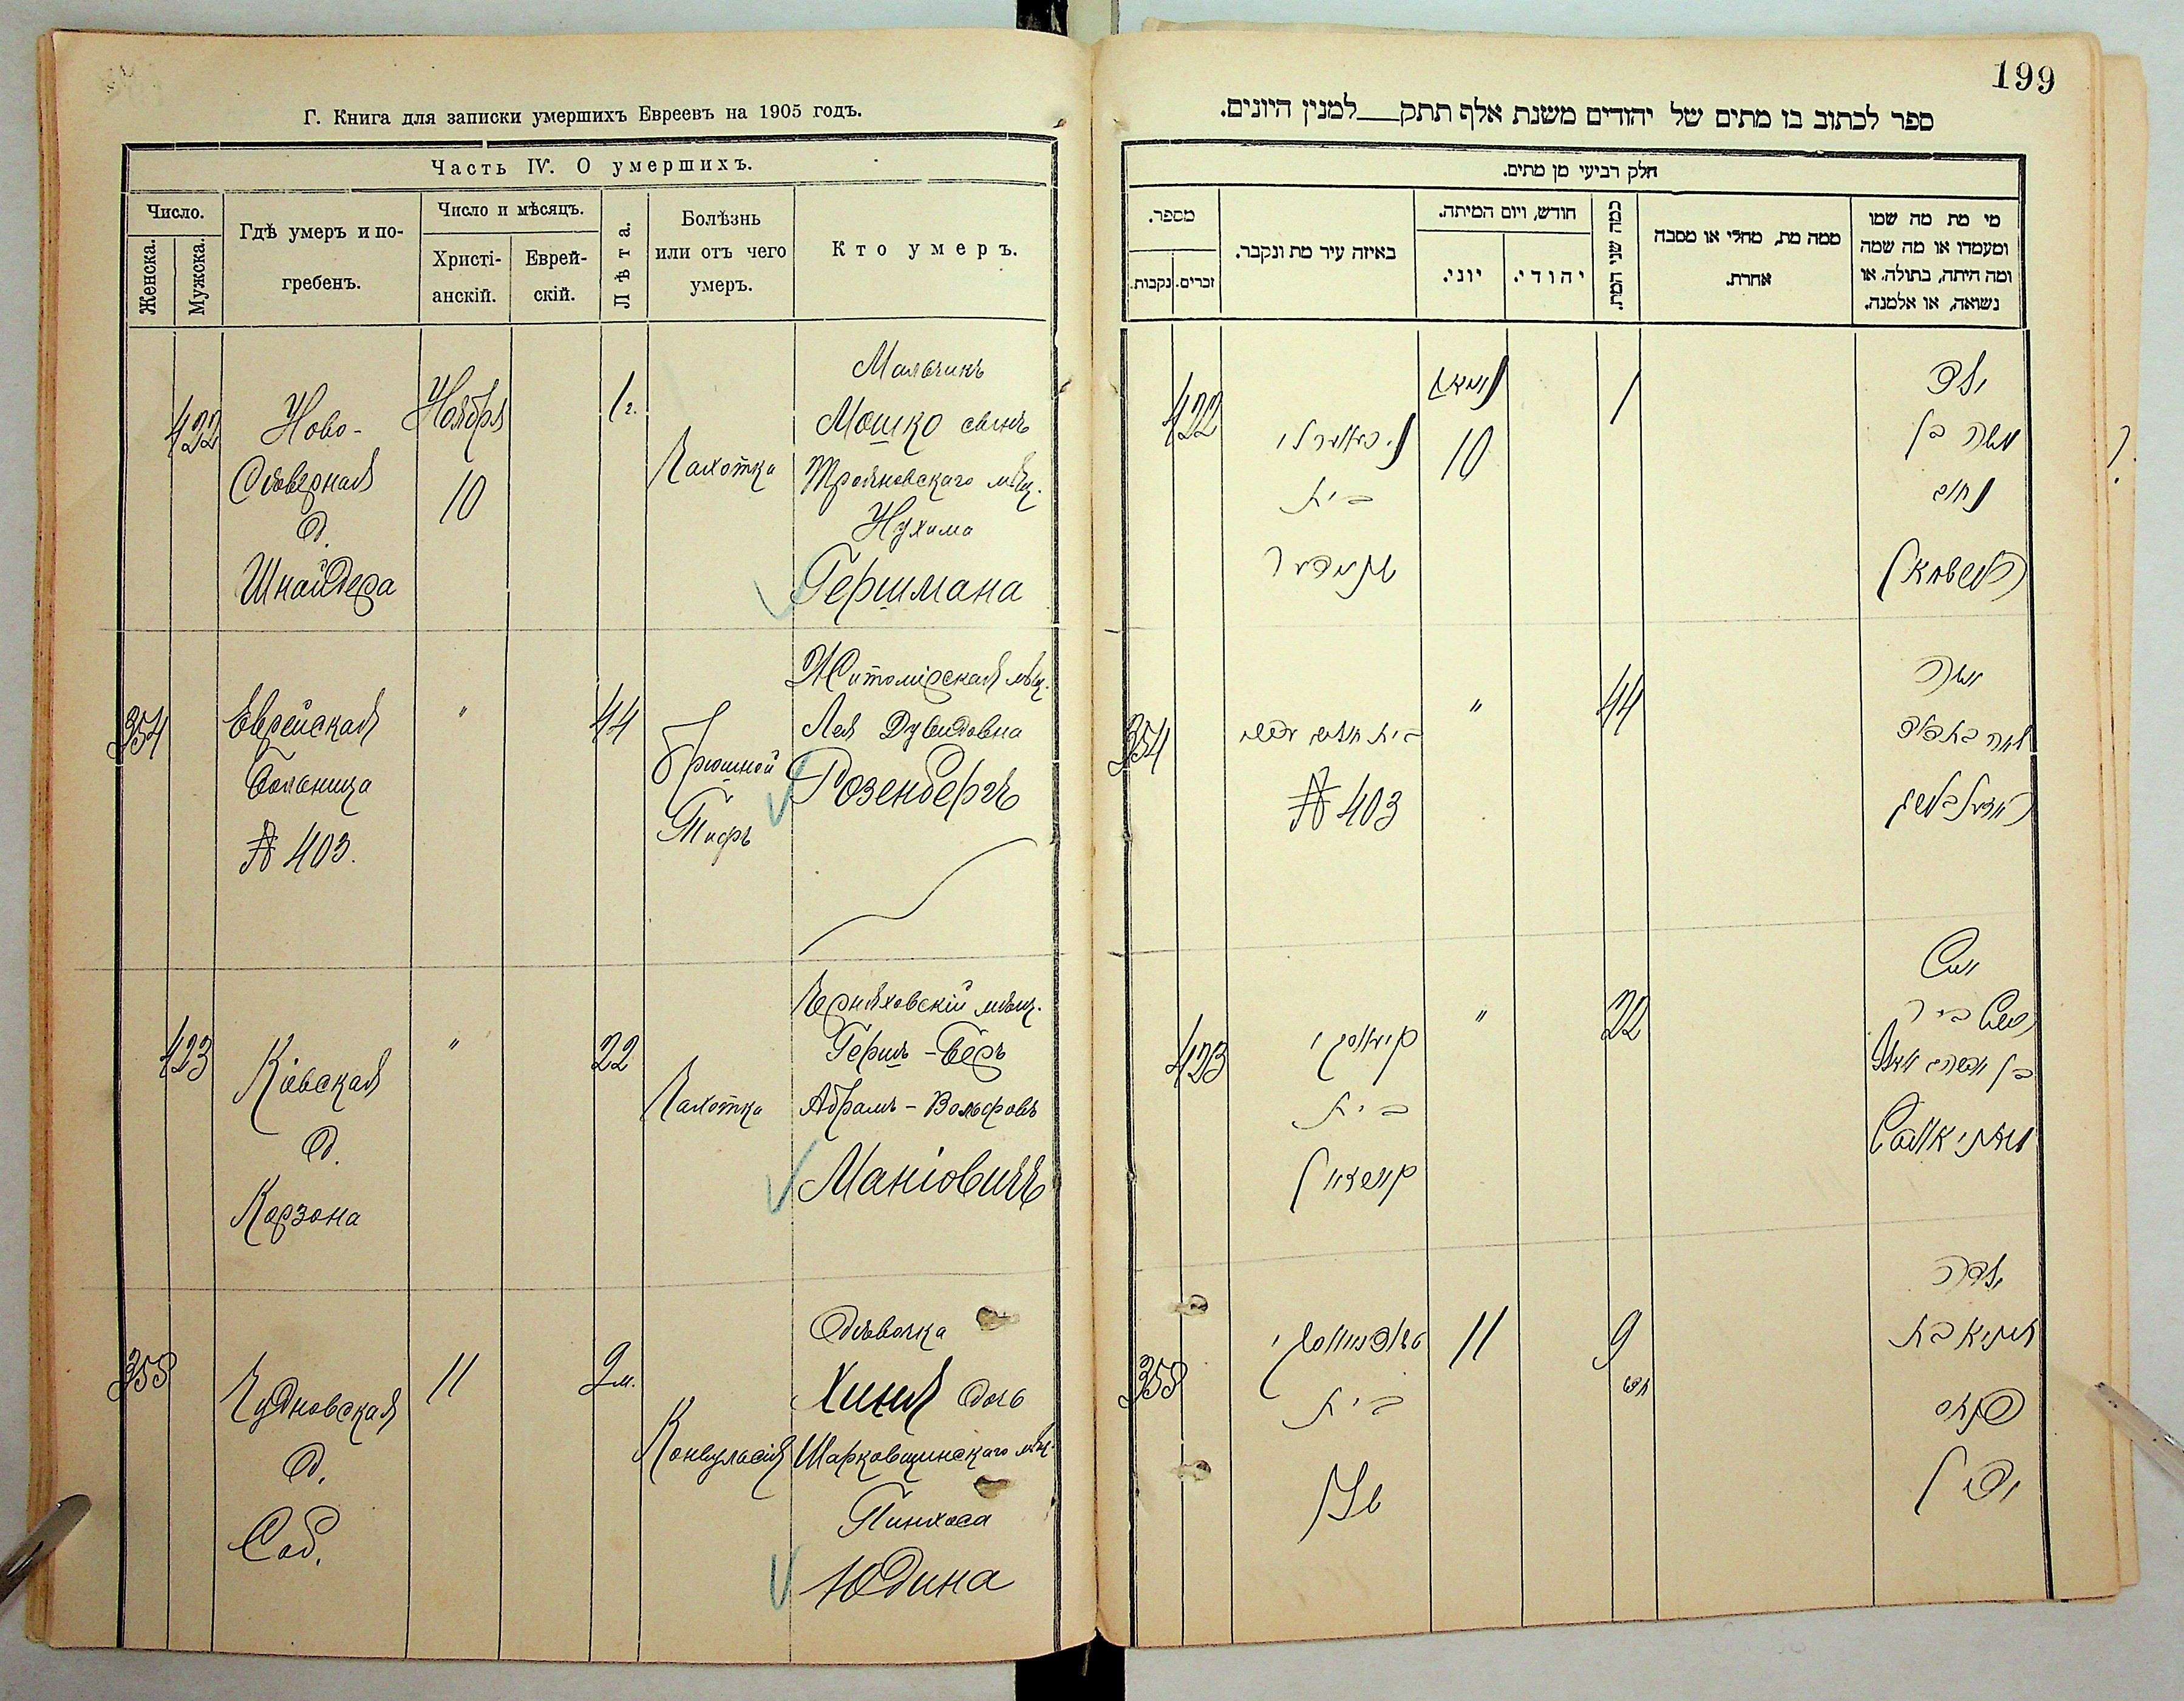 199
Г. Книга для записки умершихъ Евреевъ на 1905 годъ.
Часть IV. О умершихъ.
Число.
Женска.
Мужска.
Гдѣ умеръ и по-
гребенъ.
Число и мѣсяцъ.
Христі-
анскій.
Еврей-
скій.
Лѣта.
Болѣзнь
или отъ чего
умеръ.
Кто умеръ.
422
Ново-
Сѣверная
д.
Шнайдера
Ноября
10
1 г.
Чахотка
Мальчикъ
Мошко сынъ
Трояновскаго мѣщ.
Нухима
Гершмана
354
Еврейская
больница
№ 403.
"
44
Брюшной
Тифъ
Житомірская мѣщ.
Лея Дувидовна
Розенбергъ
423
Кіевская
д.
Карзона
"
22
Чахотка
Черняховскій мѣщ.
Гершъ-Беръ
Абрамъ-Вольфовъ
Маніовичъ
355
Чудновская
д.
Соб.
11
9 м.
Конвульсія
Дѣвочка
Хиня дочь
Шарковщинскаго мѣщ.
Пинхоса
Юдина
ספר לכתוב בו מתים של יהודים משנת אלף תתק למנין היונים.
חלק רביעי מן מתים.
מספר.
נקבות.
זכרים.
באיזה עיר מת ונקבר.
חודש, ויום המיתה.
יוני.
יהודי.
כמה שני המת.
ממה מת, מחלי או מסבה
אחרת.
מי מת מה שמו
ומעמדו או מה שמה
ומה היתה, בתולה, או
נשואה, או אלמנה.
422
בית
שניידער
10
1
ילד
משה בן
נחום
הערשמאן
354
№ 403
"
44
423
קיעווסקי
בית
"
22
355
טשודנאווסקי
בית
11
9
ילדה
חיניא בת
פנחס
יודין